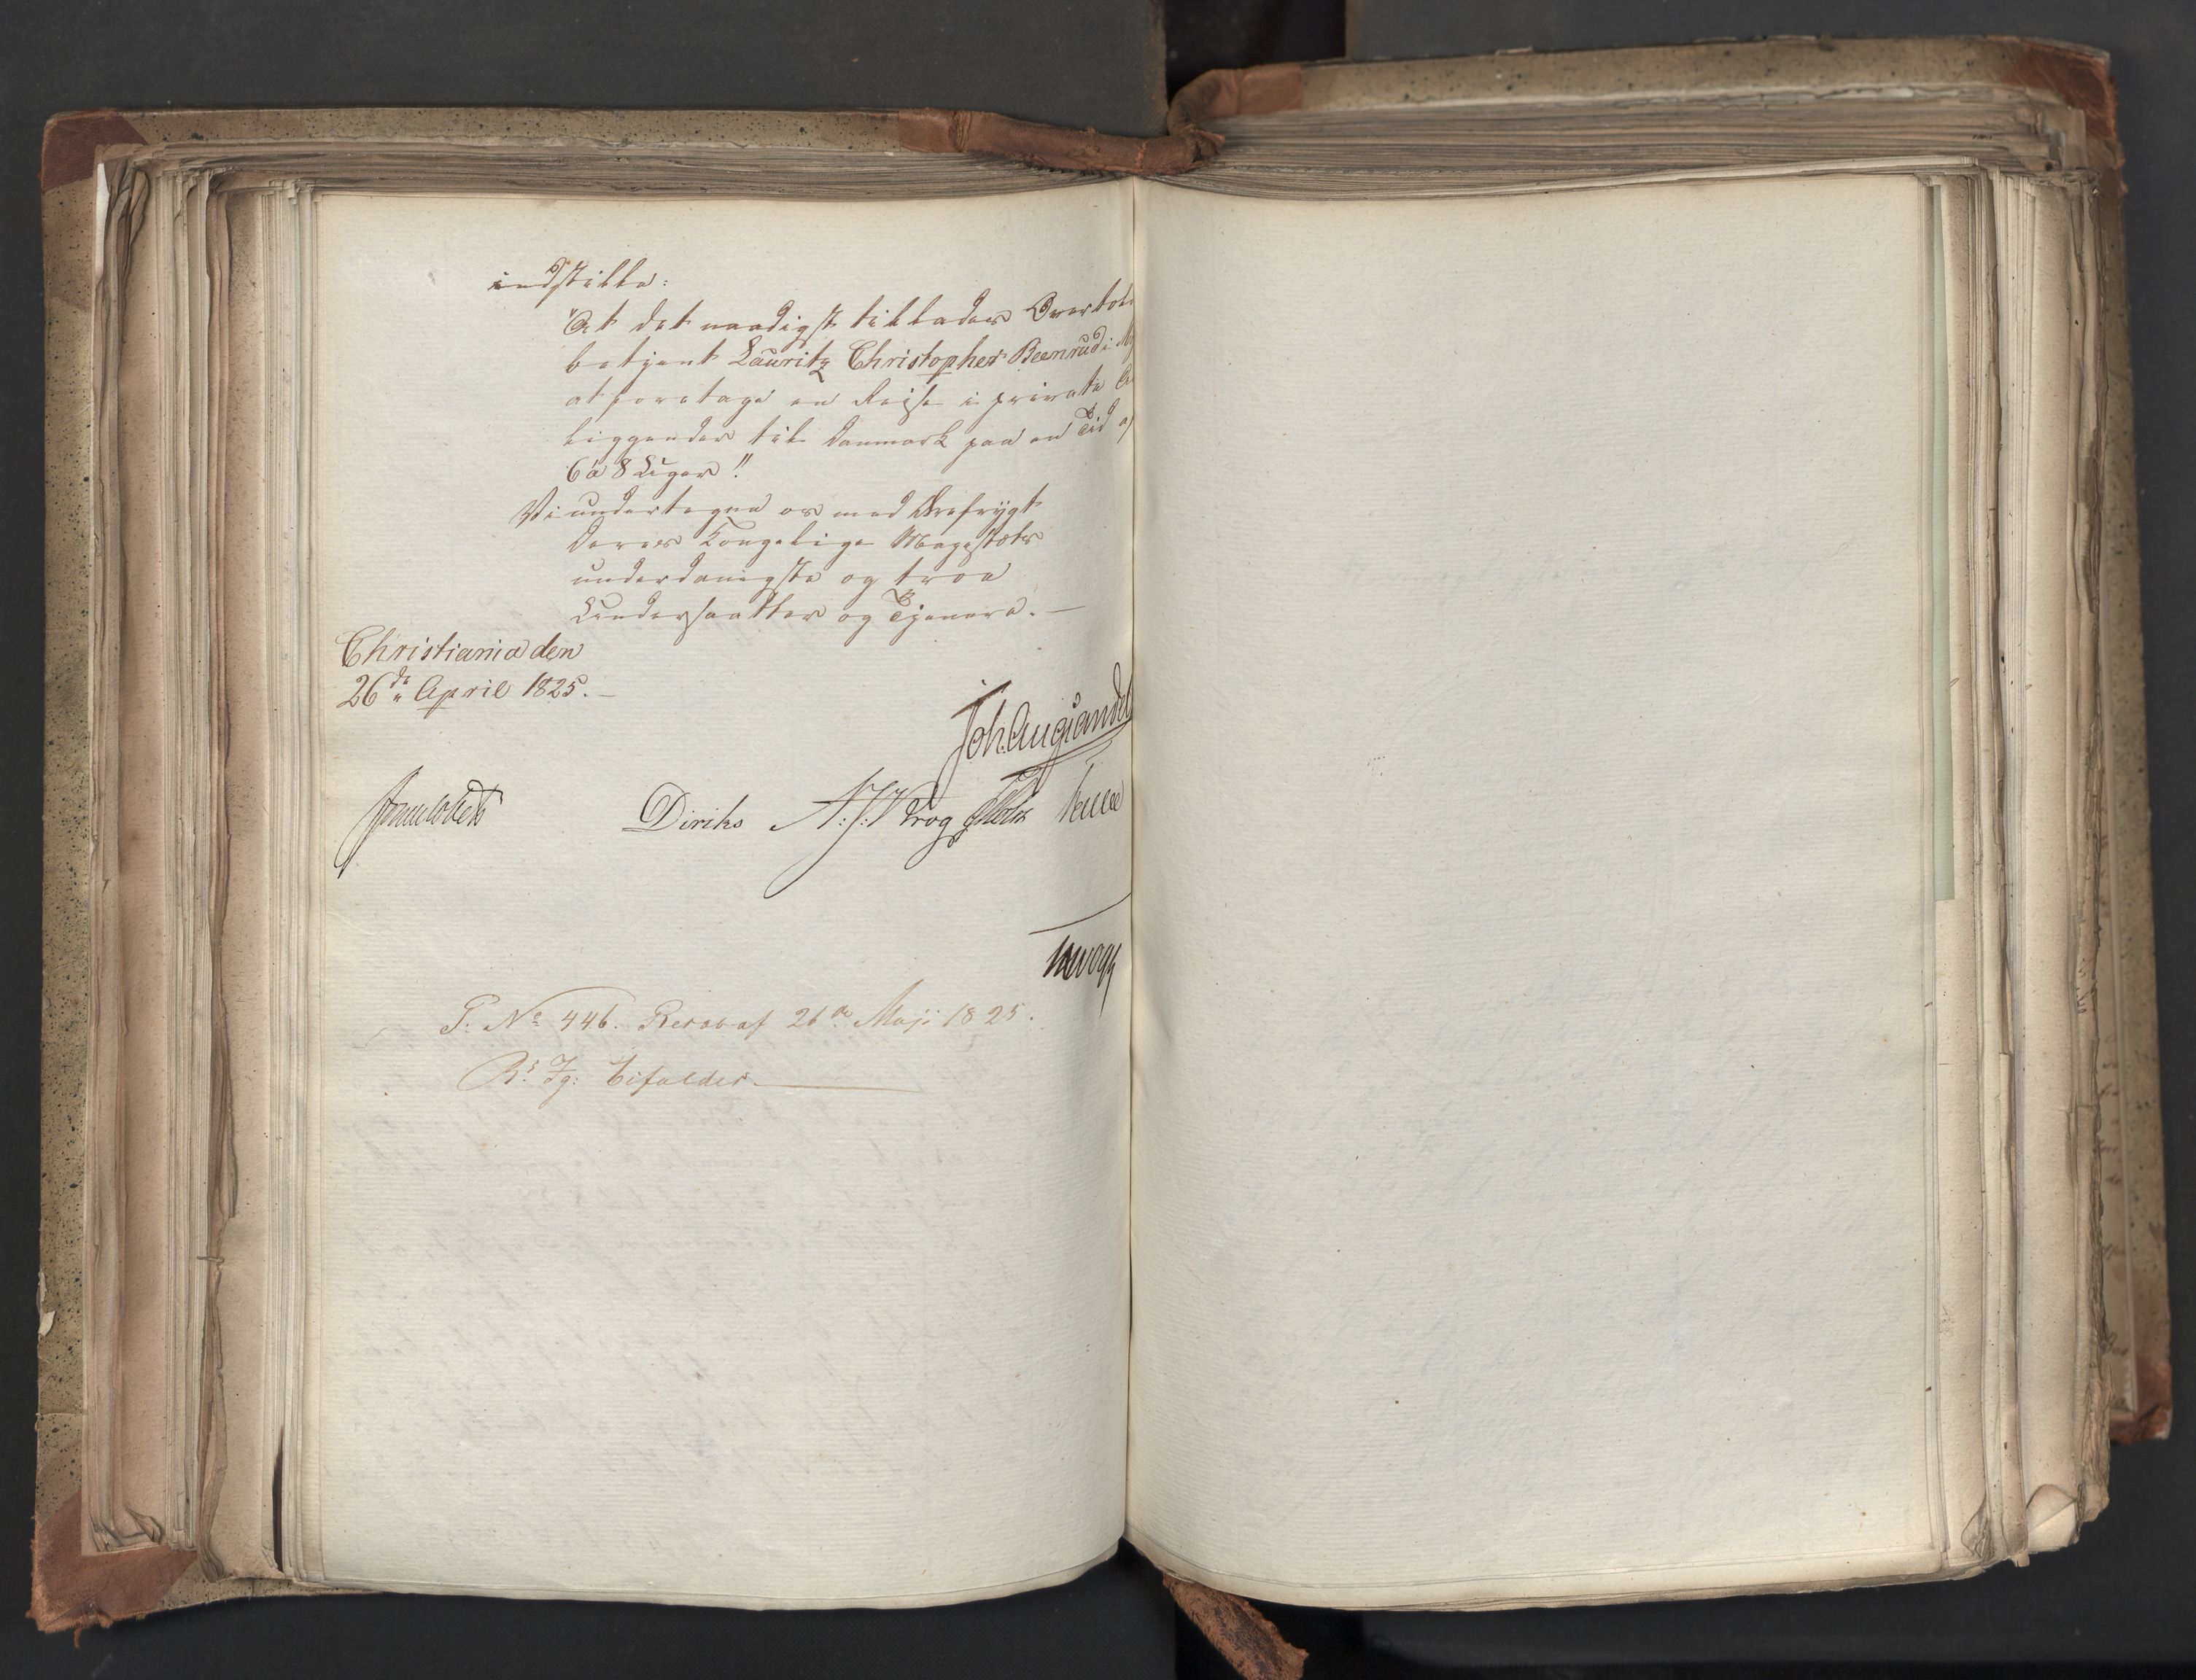 indstille:
At det naadigst tillades Overtold
betjent Lauritz Christopher Beenrud i
at foretage en Reise i private
liggender til Danmark paa en Tid af
6 à 8 Uger!!
Vi undertegne os med Ærefrygt
Deres Kongelige Majestæts
underdanigste og troe
Undersaatter og Tjenere. —
Christiania den
26de April 1825. —
Joh. Aug. Sandel
Diriks
Krog
P: No 446. Resol af 26de Maji 1825.
bifaldes.